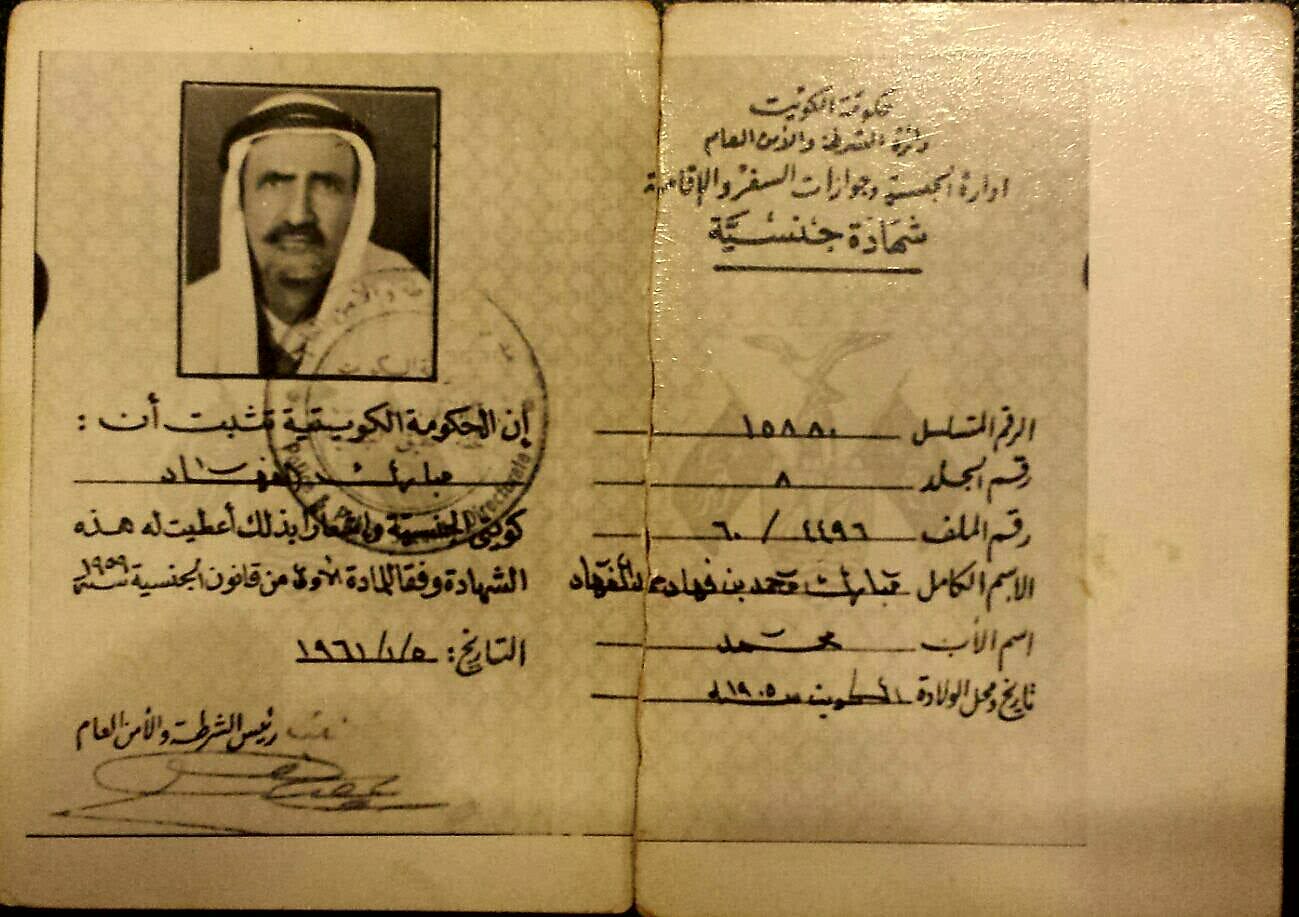 حكومة الكويت
دائرة الشرطة والأمن العام
ادارة الجنسية وجوازات السفر والإقامة
شهادة جنسية
الرقم المتسلسل ١٥٨٨٠
رقم الجلد ٨
رقم الملف ٤٤٩٦ / ٦٠
الإسم الكامل مبارك محمد بن فهاد الفهاد
اسم الأب محمد
تاريخ ومحل الولادة الكويت سنة ١٩٠٥
إن الحكومة الكويتية تثبت أن :
مبارك الفهاد
كويتي الجنسية وإشعارا بذلك أعطيت له هذه
الشهادة وفقا للمادة الأولى من قانون الجنسية سنة ١٩٥٩
التاريخ : ١٩٦١/١/٥
رئيس الشرطة والأمن العام
Directorate